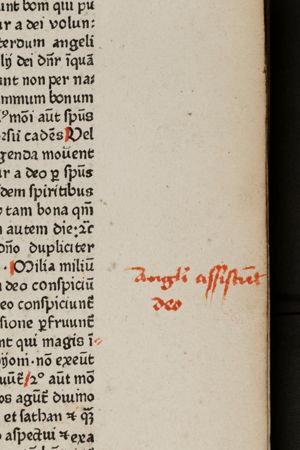 unt bom qui pu
r a dei volun⸗
terdum angeli
lij dei dn̄r īquā
unt non per na⸗
mmum bonum
mōi aūt sp̄us
rsii cadēs Vel
genda mouent
r a deo ꝑ sp̄us
dem spiritibus
tam bona qm̄
autem die:⁊c̄
dn̄o dupliciter
Milia miliū
deo conspiciū
eo conspiciunt̄
sione ꝑfruunt̄
nt qui magis i⸗
ijom· nō exeūt
uūt̄/ 2º aūt mō
os agūt̄ diuino
et sathan ⁊ q̄
aspectui ⁊ exa
Angeli assistūt
deo